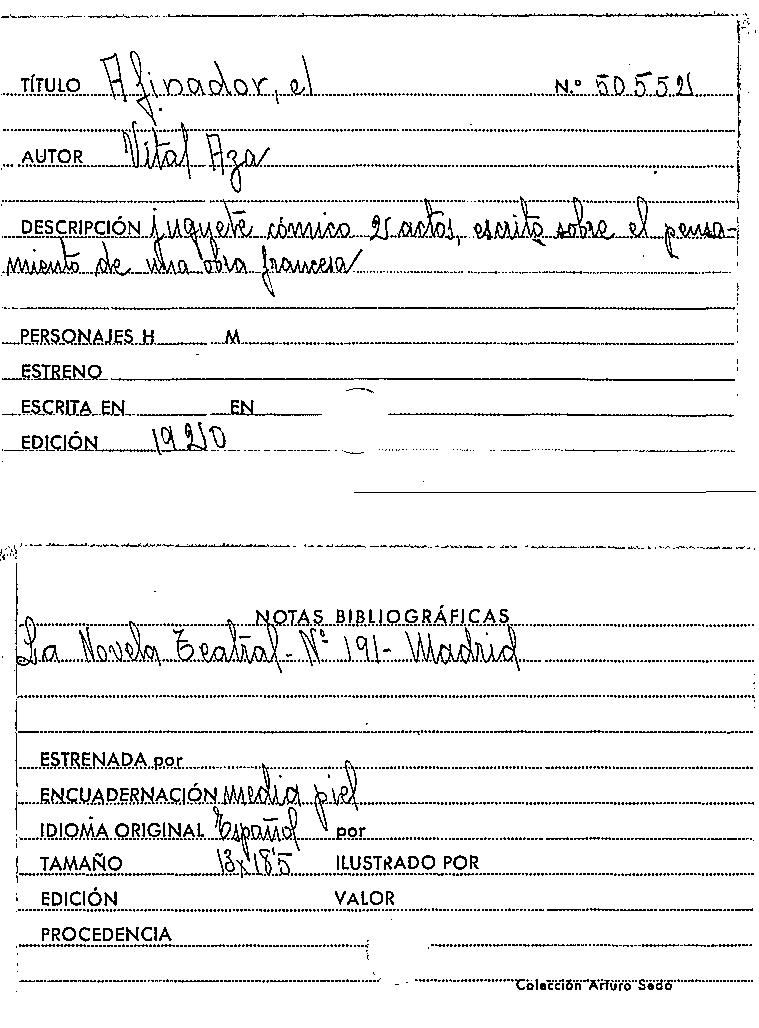 TÍTULO Afinador, el N.º 50552
AUTOR Vital Aza
DESCRIPCIÓN juguete cómico 2 actos, escrito sobre el pensa-
miento de una obra francesa
PERSONAJES H M
ESTRENO
ESCRITA EN EN
EDICIÓN 1920
NOTAS BIBLIOGRÁFICAS
La Novela Teatral - Nº 191 - Madrid
ESTRENADA por
ENCUADERNACIÓN media piel
IDIOMA ORIGINAL Español por
TAMAÑO 13x18'5 ILUSTRADO POR
EDICIÓN VALOR
PROCEDENCIA
Colección Arturo Sedó